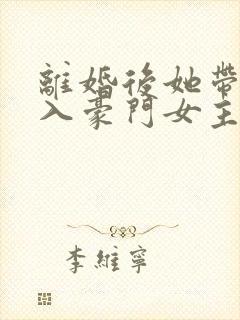 離婚後她帶
入豪門女主
李維寧